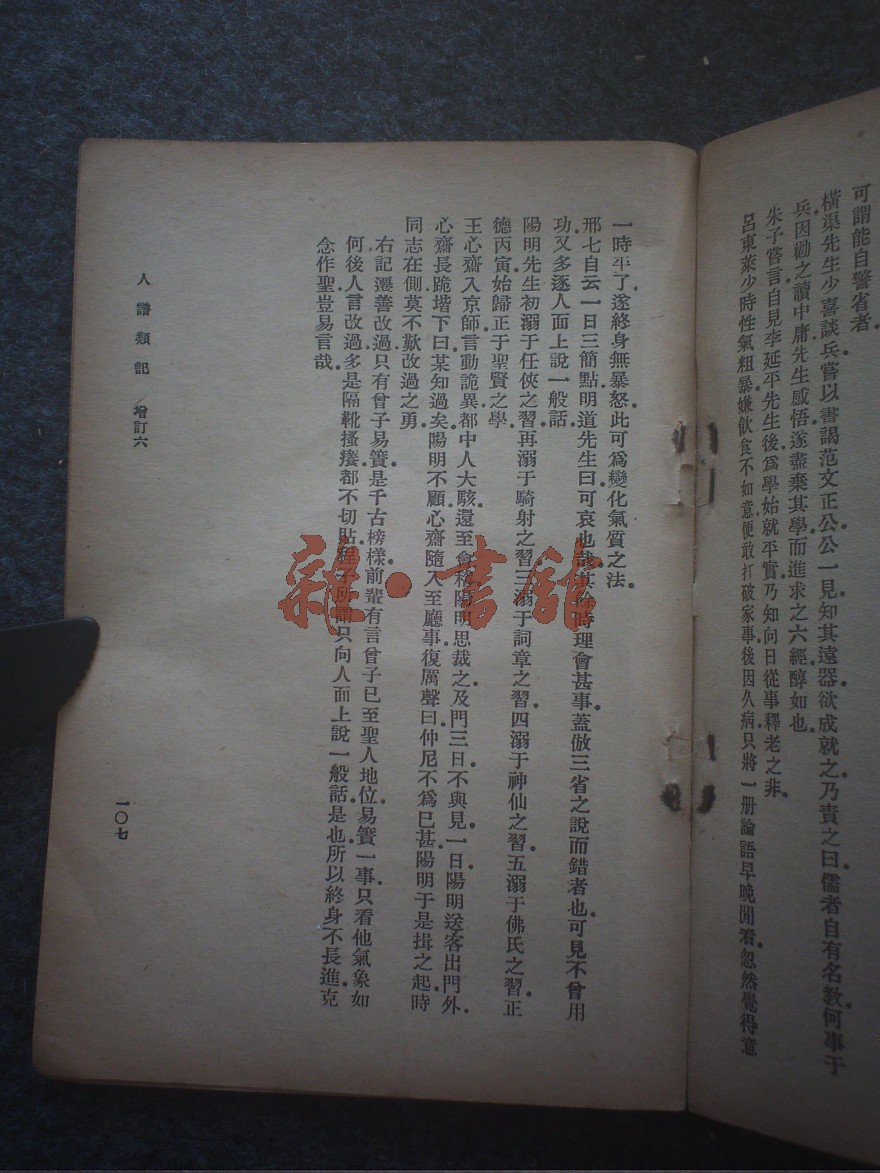 可謂能自警省者。
橫渠先生少喜談兵嘗以書謁范文正公。公一見知其遠器欲成就之乃責之曰儒者自有名教何事于
兵。因勸之讀中庸先生感悟遂盡棄其學而進求之六經醇如也。
朱子嘗言自見李延平先生後爲學始就平實乃知向日從事釋老之非。
呂東萊少時性氣粗暴嫌飲食不如意便敢打破家事後因久病只將一册論語早晚閒看。忽然覺得意
一時平了。遂終身無暴怒此可爲變化氣質之法。
邢七自云一日三簡點明道先生曰可哀也哉其餘時理會甚事蓋倣三省之說而錯者也。可見不曾用
功又多逐人面上說一般話。
陽明先生初溺于任俠之習再溺于騎射之習三溺于詞章之習。四溺于神仙之習。五溺于佛氏之習。正
德丙寅始歸正于聖賢之學。
王心齋入京師言動詭異都中人大駭還至會稽陽明思裁之及門三日不與見一日陽明送客出門外。
心齋長跪堦下曰某知過矣。陽明不顧心齋隨入至廳事復厲聲曰仲尼不爲已甚陽明于是揖之起。時
同志在側莫不歎改過之勇。
右記遷善改過只有曾子易簀是千古榜樣。前輩有言曾子已至聖人地位。易簀一事只看他氣象如
何後人言改過多是隔靴搔癢都不切貼程子所謂只向人面上說一般話是也。所以終身不長進克
念作聖豈易言哉。
人譜類記 增訂六
一〇七
雜·書館